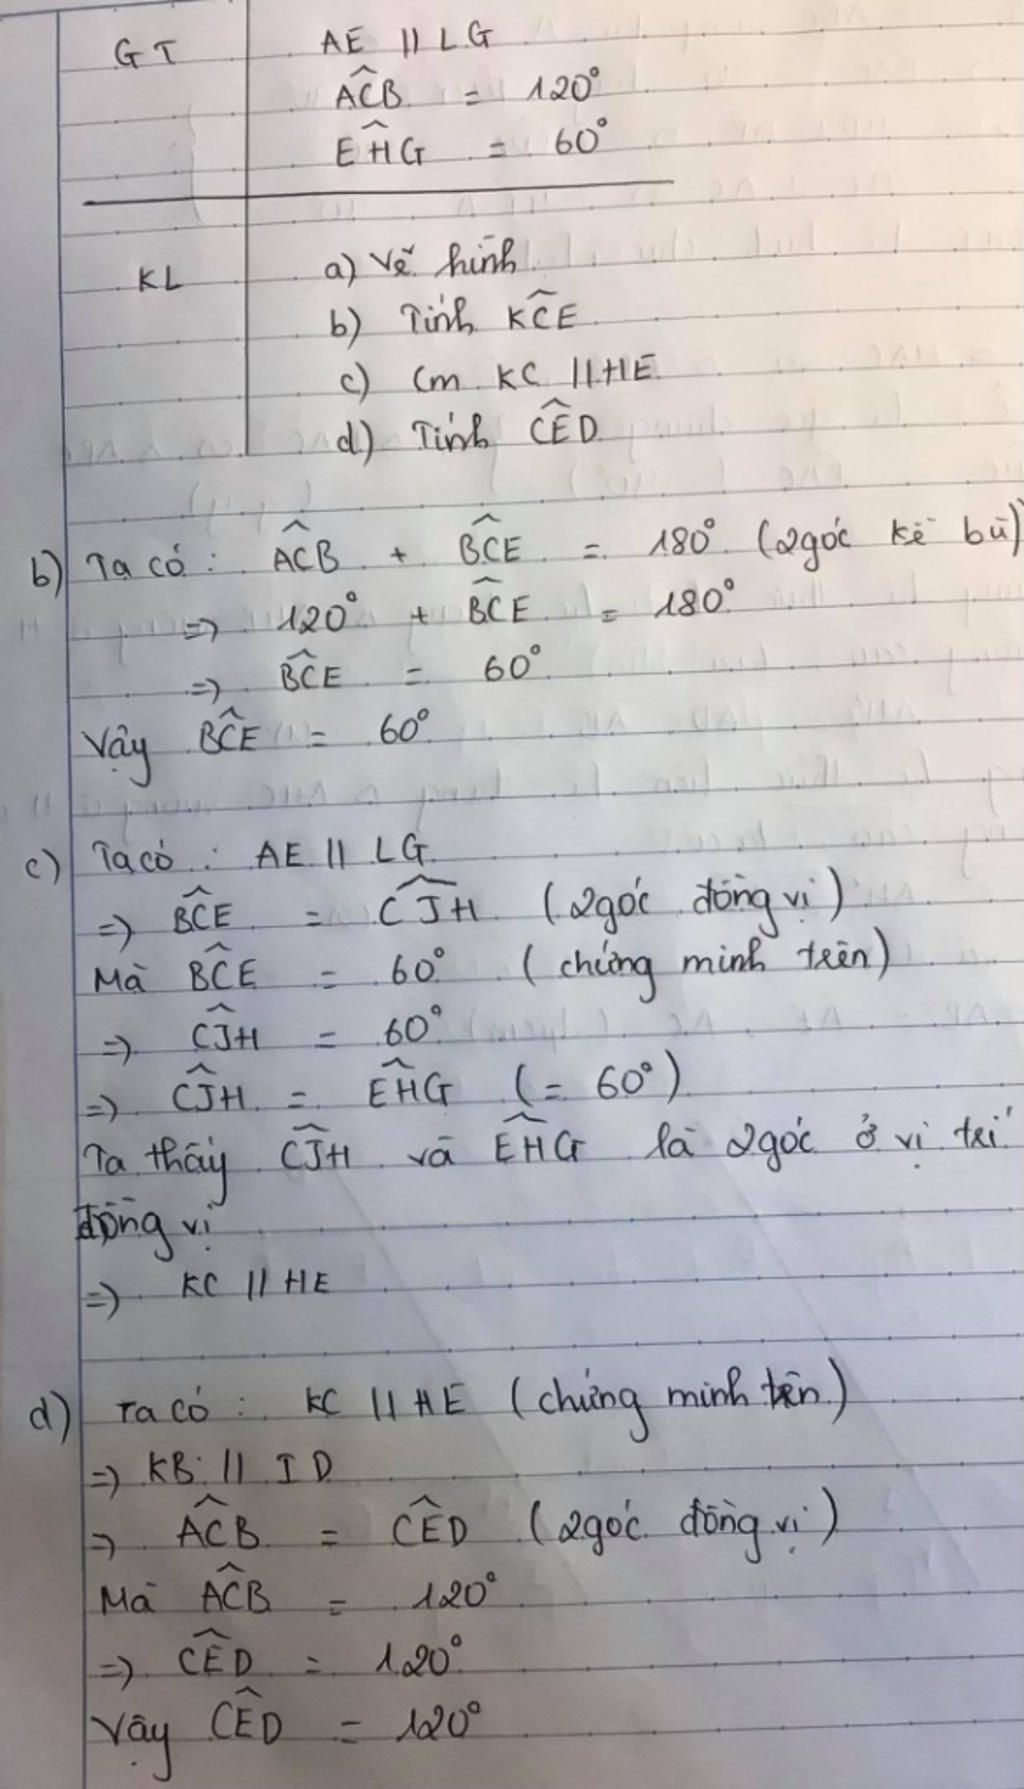 GT AE // LG
ACB̂ = 120°
EHĜ = 60°
KL a) Vẽ hình
b) Tính KCÊ
c) Cm KC // HE
d) Tính CÊD
b) Ta có : AĈB + BĈE = 180° (2 góc kề bù)
=> 120° + BĈE = 180°
=> BĈE = 60°
Vậy BĈE = 60°
c) Ta có : AE // LG
=> BĈE = CĴH (2 góc đồng vị)
Mà BĈE = 60° (chứng minh trên)
=> CĴH = 60°
=> CĴH = EĤG (= 60°)
Ta thấy CĴH và EĤG là 2 góc ở vị trí
đồng vị
=> KC // HE
d) Ta có : KC // HE (chứng minh trên)
=> KB // ID
=> AĈB = CÊD (2 góc đồng vị)
Mà AĈB = 120°
=> CÊD = 120°
Vậy CÊD = 120°